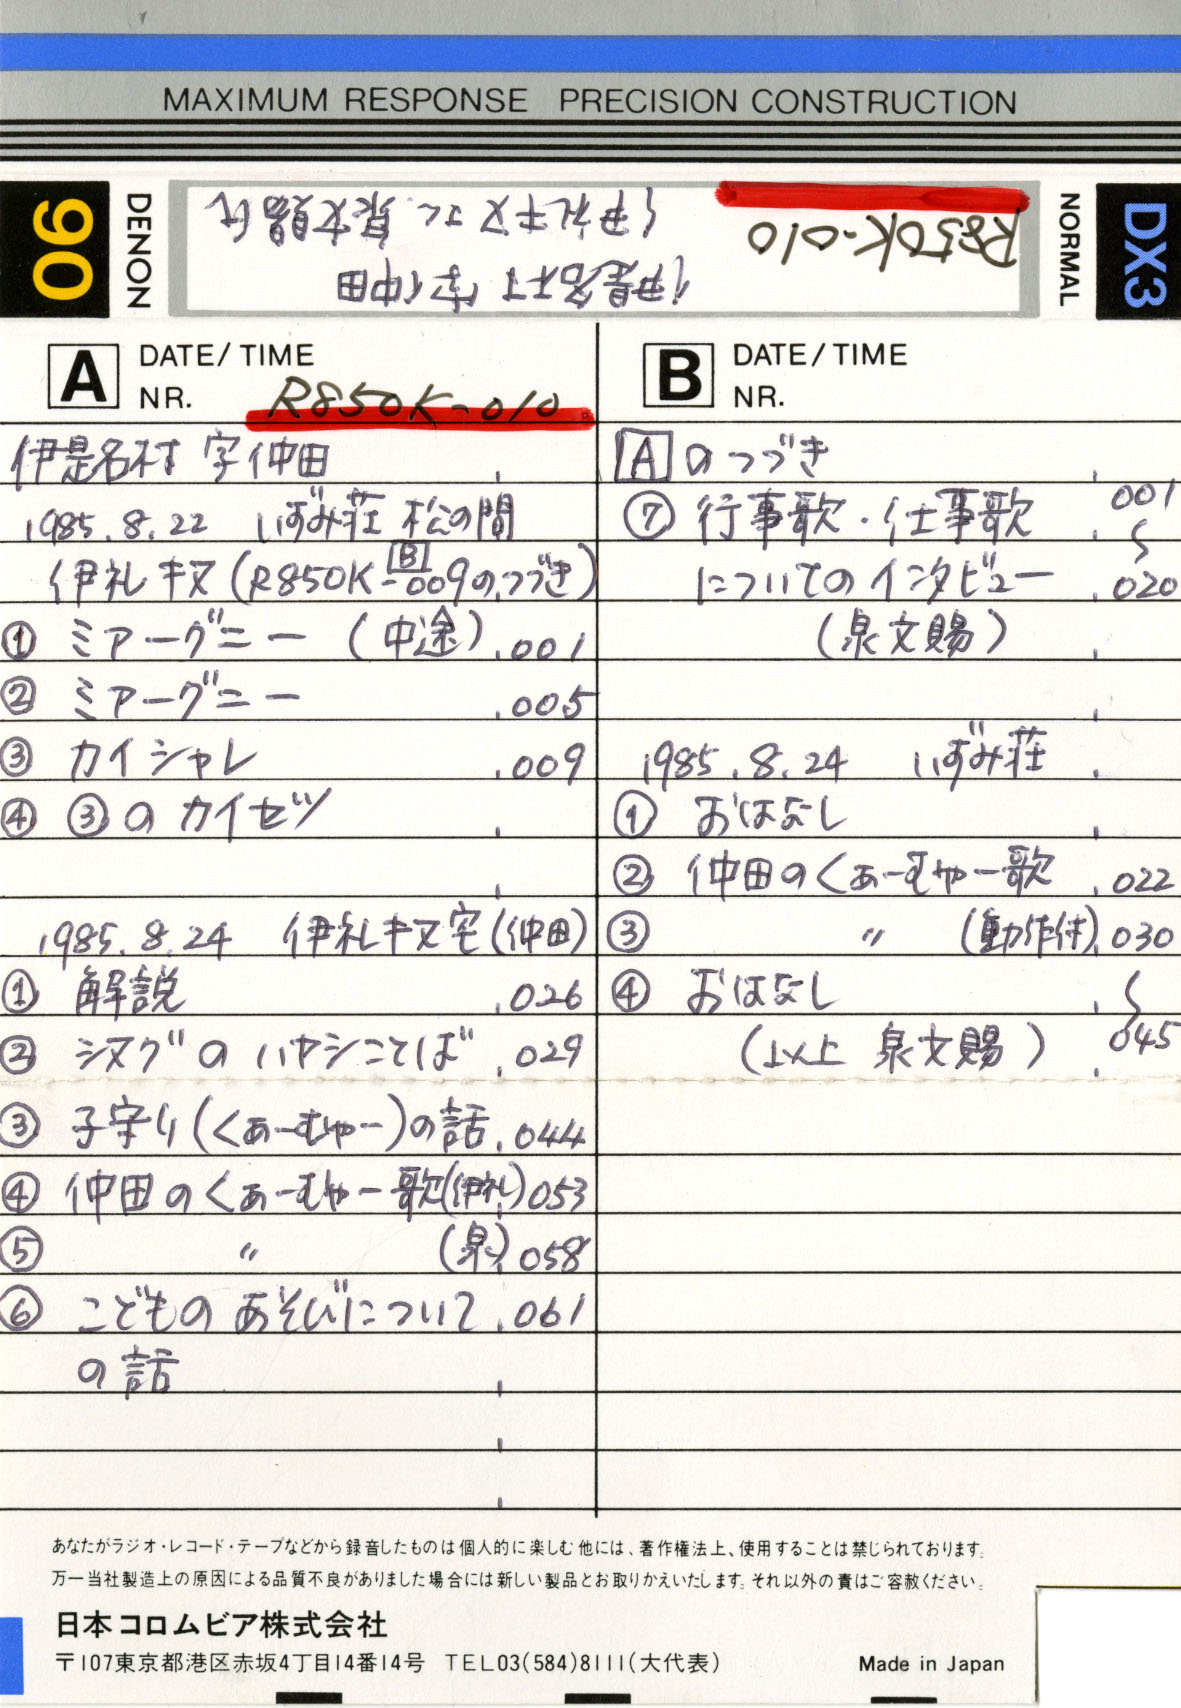 MAXIMUM RESPONSE PRECISION CONSTRUCTION
90
DENON
伊是名村 字仲田
伊礼キヌ コレ 泉文賜氏
R850K-010
NORMAL
DX3
A DATE/TIME
NR.
R850K-010
伊是名村 字仲田
1985.8.22 いずみ荘 松の間
伊礼キヌ(R850K-009Bのつづき)
① ミアーグニー (中途) 001
② ミアーグニー 005
③ カイシャレ 009
④ ③のカイセツ
1985.8.24 伊礼キヌ宅(仲田)
① 解説 026
② シヌグのハヤシことば 029
③ 子守り(くゎーむやー)の話 044
④ 仲田のくゎーむやー歌(伊礼) 053
⑤ 〃 (泉) 058
⑥ こどものあそびについて 061
の話
B DATE/TIME
NR.
Aのつづき
⑦ 行事歌・仕事歌 001
についてのインタビュー 〜020
(泉文賜)
1985.8.24 いずみ荘
① おはなし
② 仲田のくゎーむやー歌 022
③ 〃 (動作付) 030
④ おはなし 〜
(以上 泉文賜) 045
あなたがラジオ・レコード・テープなどから録音したものは個人的に楽しむ他には、著作権法上、使用することは禁じられております。
万一当社製造上の原因による品質不良がありました場合には新しい製品とお取りかえいたします。それ以外の責はご容赦ください。
日本コロムビア株式会社
〒107東京都港区赤坂4丁目14番14号 TEL03(584)8111(大代表)
Made in Japan